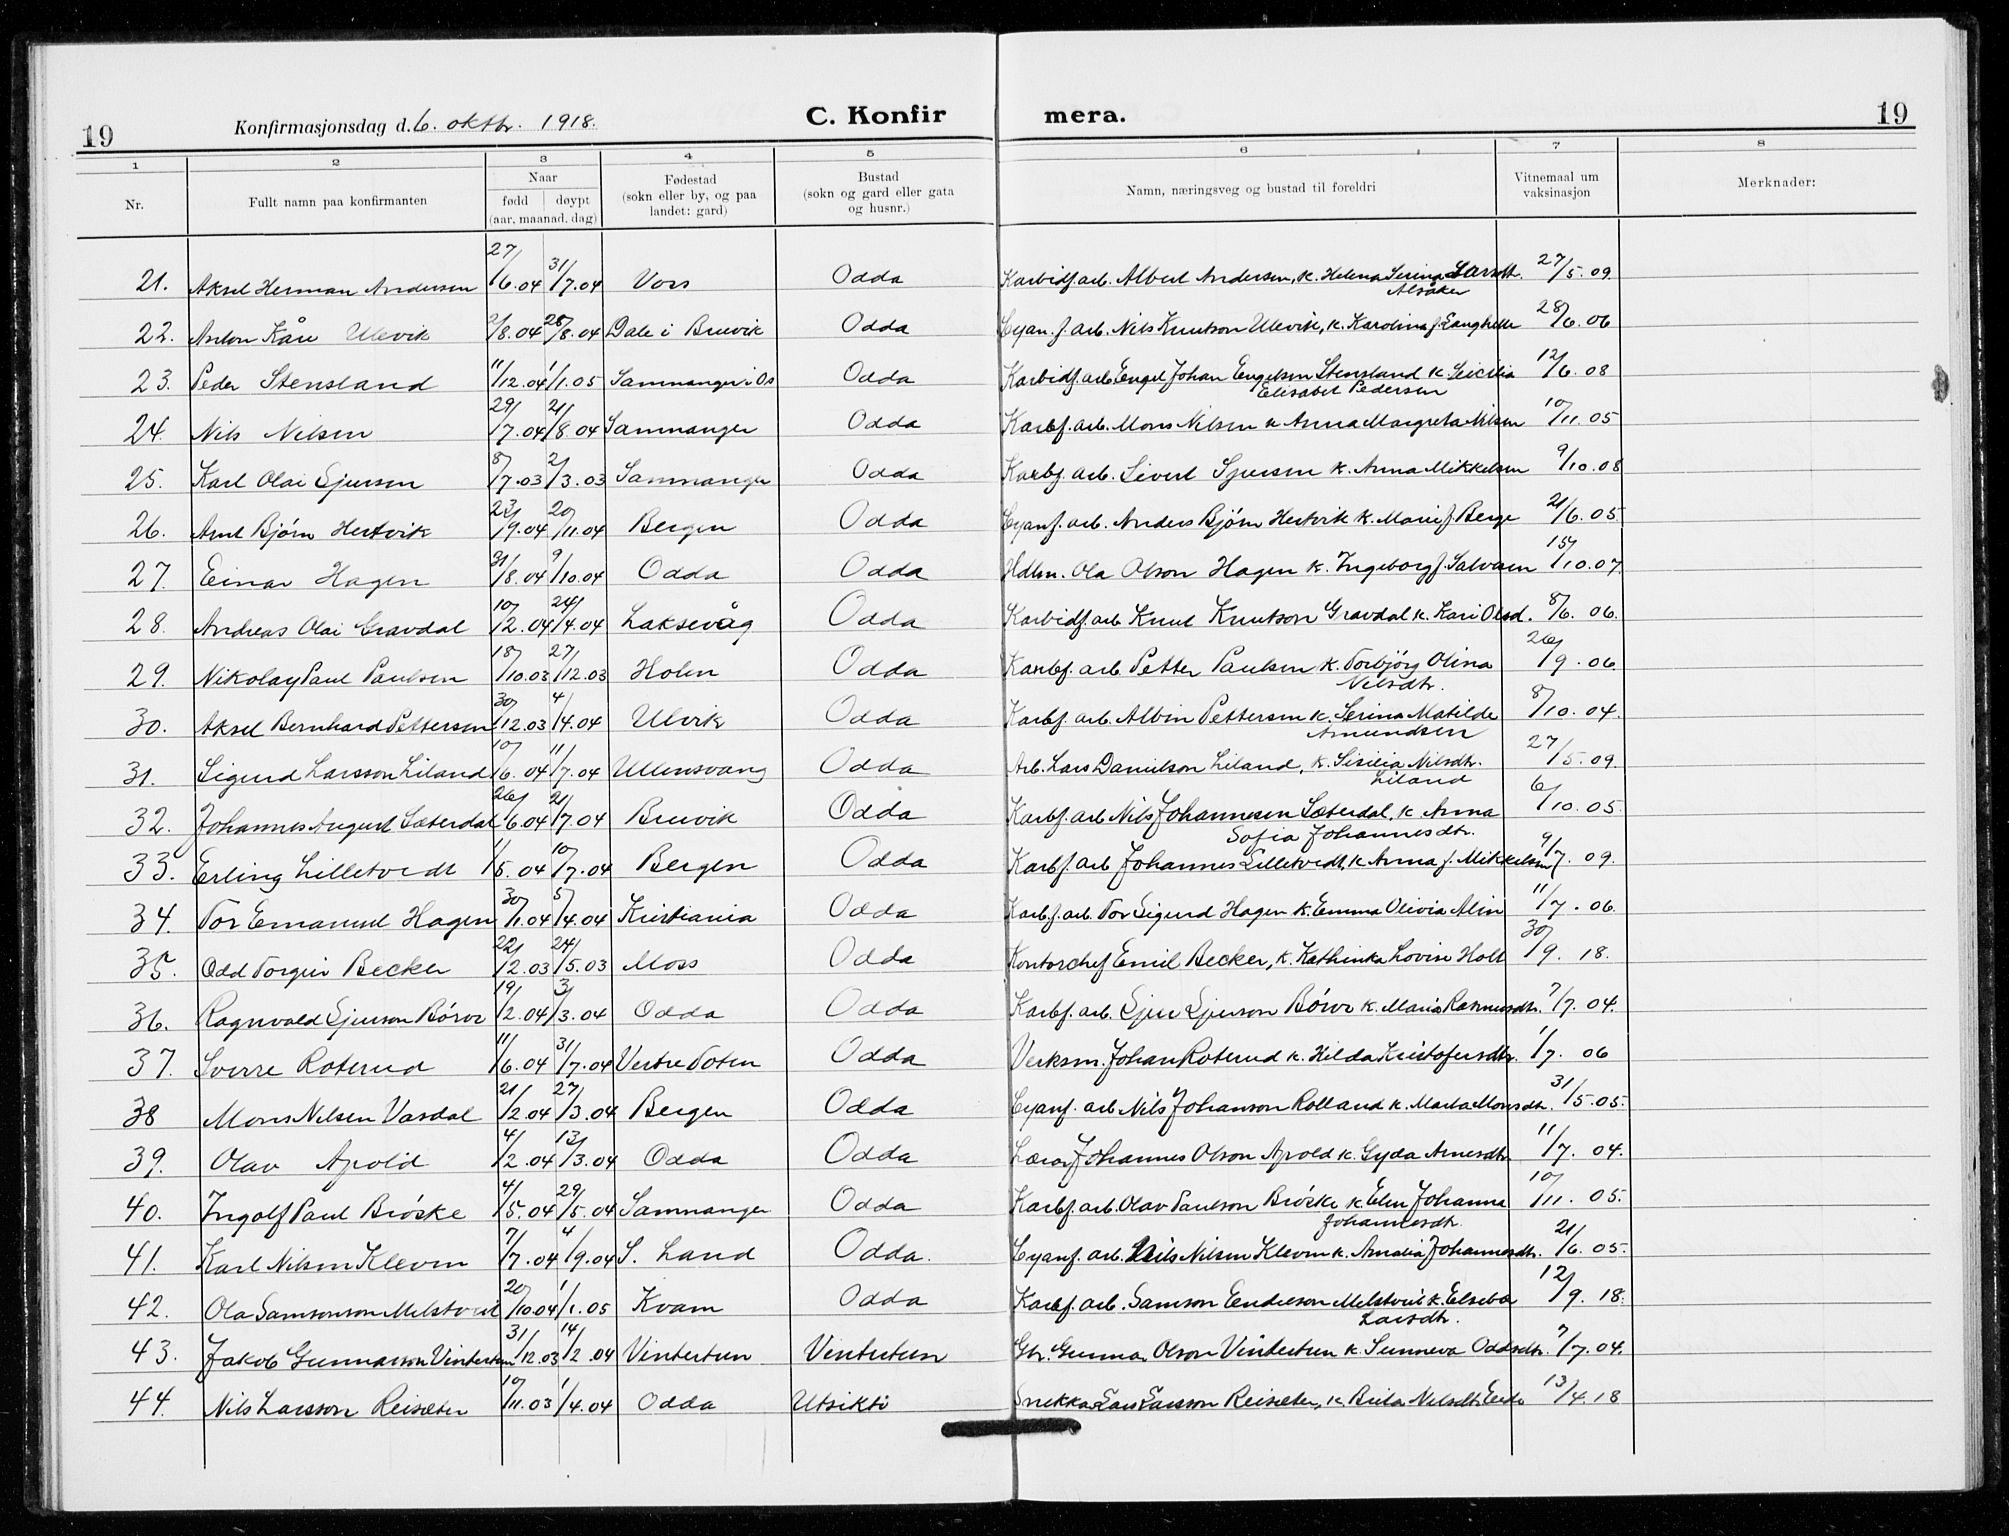 19 Konfirmasjonsdag d. 6. oktbr. 1918. C. Konfirmera. 19
1 2 3 4 5 6 7 8
Nr. Fullt namn paa konfirmanten Naar fødd døypt (aar. maanad. dag) Fødestad (sokn eller by, og paa landet: gard) Bustad (sokn og gard eller gata og husnr.) Namn, næringsveg og bustad til foreldri Vitnemaal um vaksinasjon Merknader:
21. Aksel Herman Andersen 27/6.04 31/7.04 Vors Odda Karbidf. arb. Albert Andersen, k. Helena Serina Larsdtr. 27/5.09
Alsåker
22. Anton Kåre Ulevik 2/8.04 28/8.04 Dale i Bruvik Odda Cyan. f. arb. Nils Knutson Ulevik, k. Karolina f. Langhelle 28/6.06
23. Peder Stensland 11/12.04 1/1.05 Samnanger i Os Odda Karbidf. arb. Engel Johan Engelsen Stensland k. Seicilia 12/6.08
Elisabet Pedersen
24. Nils Nilsen 29/7.04 21/8.04 Samnanger Odda Karbf. arb. Mons Nilsen k Anna Margreta Nilsen 10/11.05
25. Karl Olai Sjursen 8/7.03 2/3.03 Samnanger Odda Karbf. arb. Sivert Sjursen k. Anna Mikkelsen 9/10.08
26. Arne Bjørn Hertvik 23/9.04 20/11.04 Bergen Odda Cyanf. arb. Anders Bjørn Hertvik k. Marie f. Berge 21/6.05
27. Einar Hagen 31/8.04 9/10.04 Odda Odda Hdlm. Ola Olson Hagen k. Ingeborg f. Salvesen 15/10.07
28. Andreas Olai Gravdal 10/2.04 24/4.04 Laksevåg Odda Karbidf. arb. Knut Knutson Gravdal k. Kari Olsd. 8/6.06.
29. Nikolay Paul Paulsen 18/10.03 27/12.03 Holm Odda Karbf. arb. Petter Paulsen k. Torbjørg Olina 26/9.06
Nilsdtr.
30. Aksel Bernhard Pettersen 30/12.03 4/4.04 Ulvik Odda Karbf. arb. Albin Pettersen k. Serina Matilde 8/10.04.
Amundsen
31. Sigurd Larsson Liland 10/6.04 11/7.04 Ullensvang Odda Arb. Lars Danielson Liland, k. Sisilia Nilsdtr. 27/5.09.
Liland
32. Johannes August Sæterdal 26/6.04 21/7.04 Bruvik Odda Karbf. arb Nils Johannesen Sæterdal, k Anna 6/10.05
Sofia Johannesdtr.
33. Erling Lilletvedt 1/5.04 10/7.04 Bergen Odda Karbf. arb Johannes Lilletvedt, k. Anna f. Mikkelsen 9/7.09.
34. Tor Emanuel Hagen 30/1.04 5/4.04 Kristiania Odda Karb. f. arb. Tor Sigurd Hagen k. Emma Olivia Alin 11/7.06.
35. Odd Torgeir Becker 22/2.03 24/5.03 Moss Odda Kontorchef Emil Becker, k. Kathinka Lovise Holt 30/9.18.
36. Ragnvald Sjurson Børve 19/2.04 3/3.04 Odda Odda Karbf. arb. Sjur Sjurson Børve k. Maria Rasmusdtr. 7/7.04.
37. Sverre Roterud 11/6.04 31/7.04 Vestre Toten Odda Verksm. Johan Roterud k. Hilda Kristofersdtr. 1/7.06
38 Mons Nilsen Vasdal 21/2.04 27/3.04 Bergen Odda Cyanf. arb Nils Johanson Rolland k. Marta Monsdtr. 31/5.05.
39. Olav Apold 4/2.04 13/3.04 Odda Odda Lærar Johannes Olson Apold k. Gyda Arnesdtr 11/7.04.
40. Ingolf Paul Brøske 4/5.04 29/5.04 Samnanger Odda Karbf. arb. Olav Paulson Brøske k. Elen Johanna 10/11.05.
Johannesdtr.
41. Karl Nilsen Klevm 7/7.04 4/9.04 S. Land Odda. Cyanf. arb. Nils Nilsen Klevm k. Amalia Johannesdtr. 21/6.05.
42. Ola Samsonson Melstveit 20/10.04 1/1.05 Kvam Odda Karbf. arb. Samson Endreson Melstveit k. Elseba 12/9.18.
Larsdtr.
43. Jakob Gunnarson Vintertun 31/12.03 14/2.04 Vintertun Vintertun Gbr. Gunnar Olson Vintertun k. Sunneva Oddsdtr. 7/7.04.
44. Nils Larsson Reisæter 10/11.03 1/4.04 Odda Utsikti Snekkar Lars Larsson Reisæter, k. Brita Nilsdtr. 13/4.18